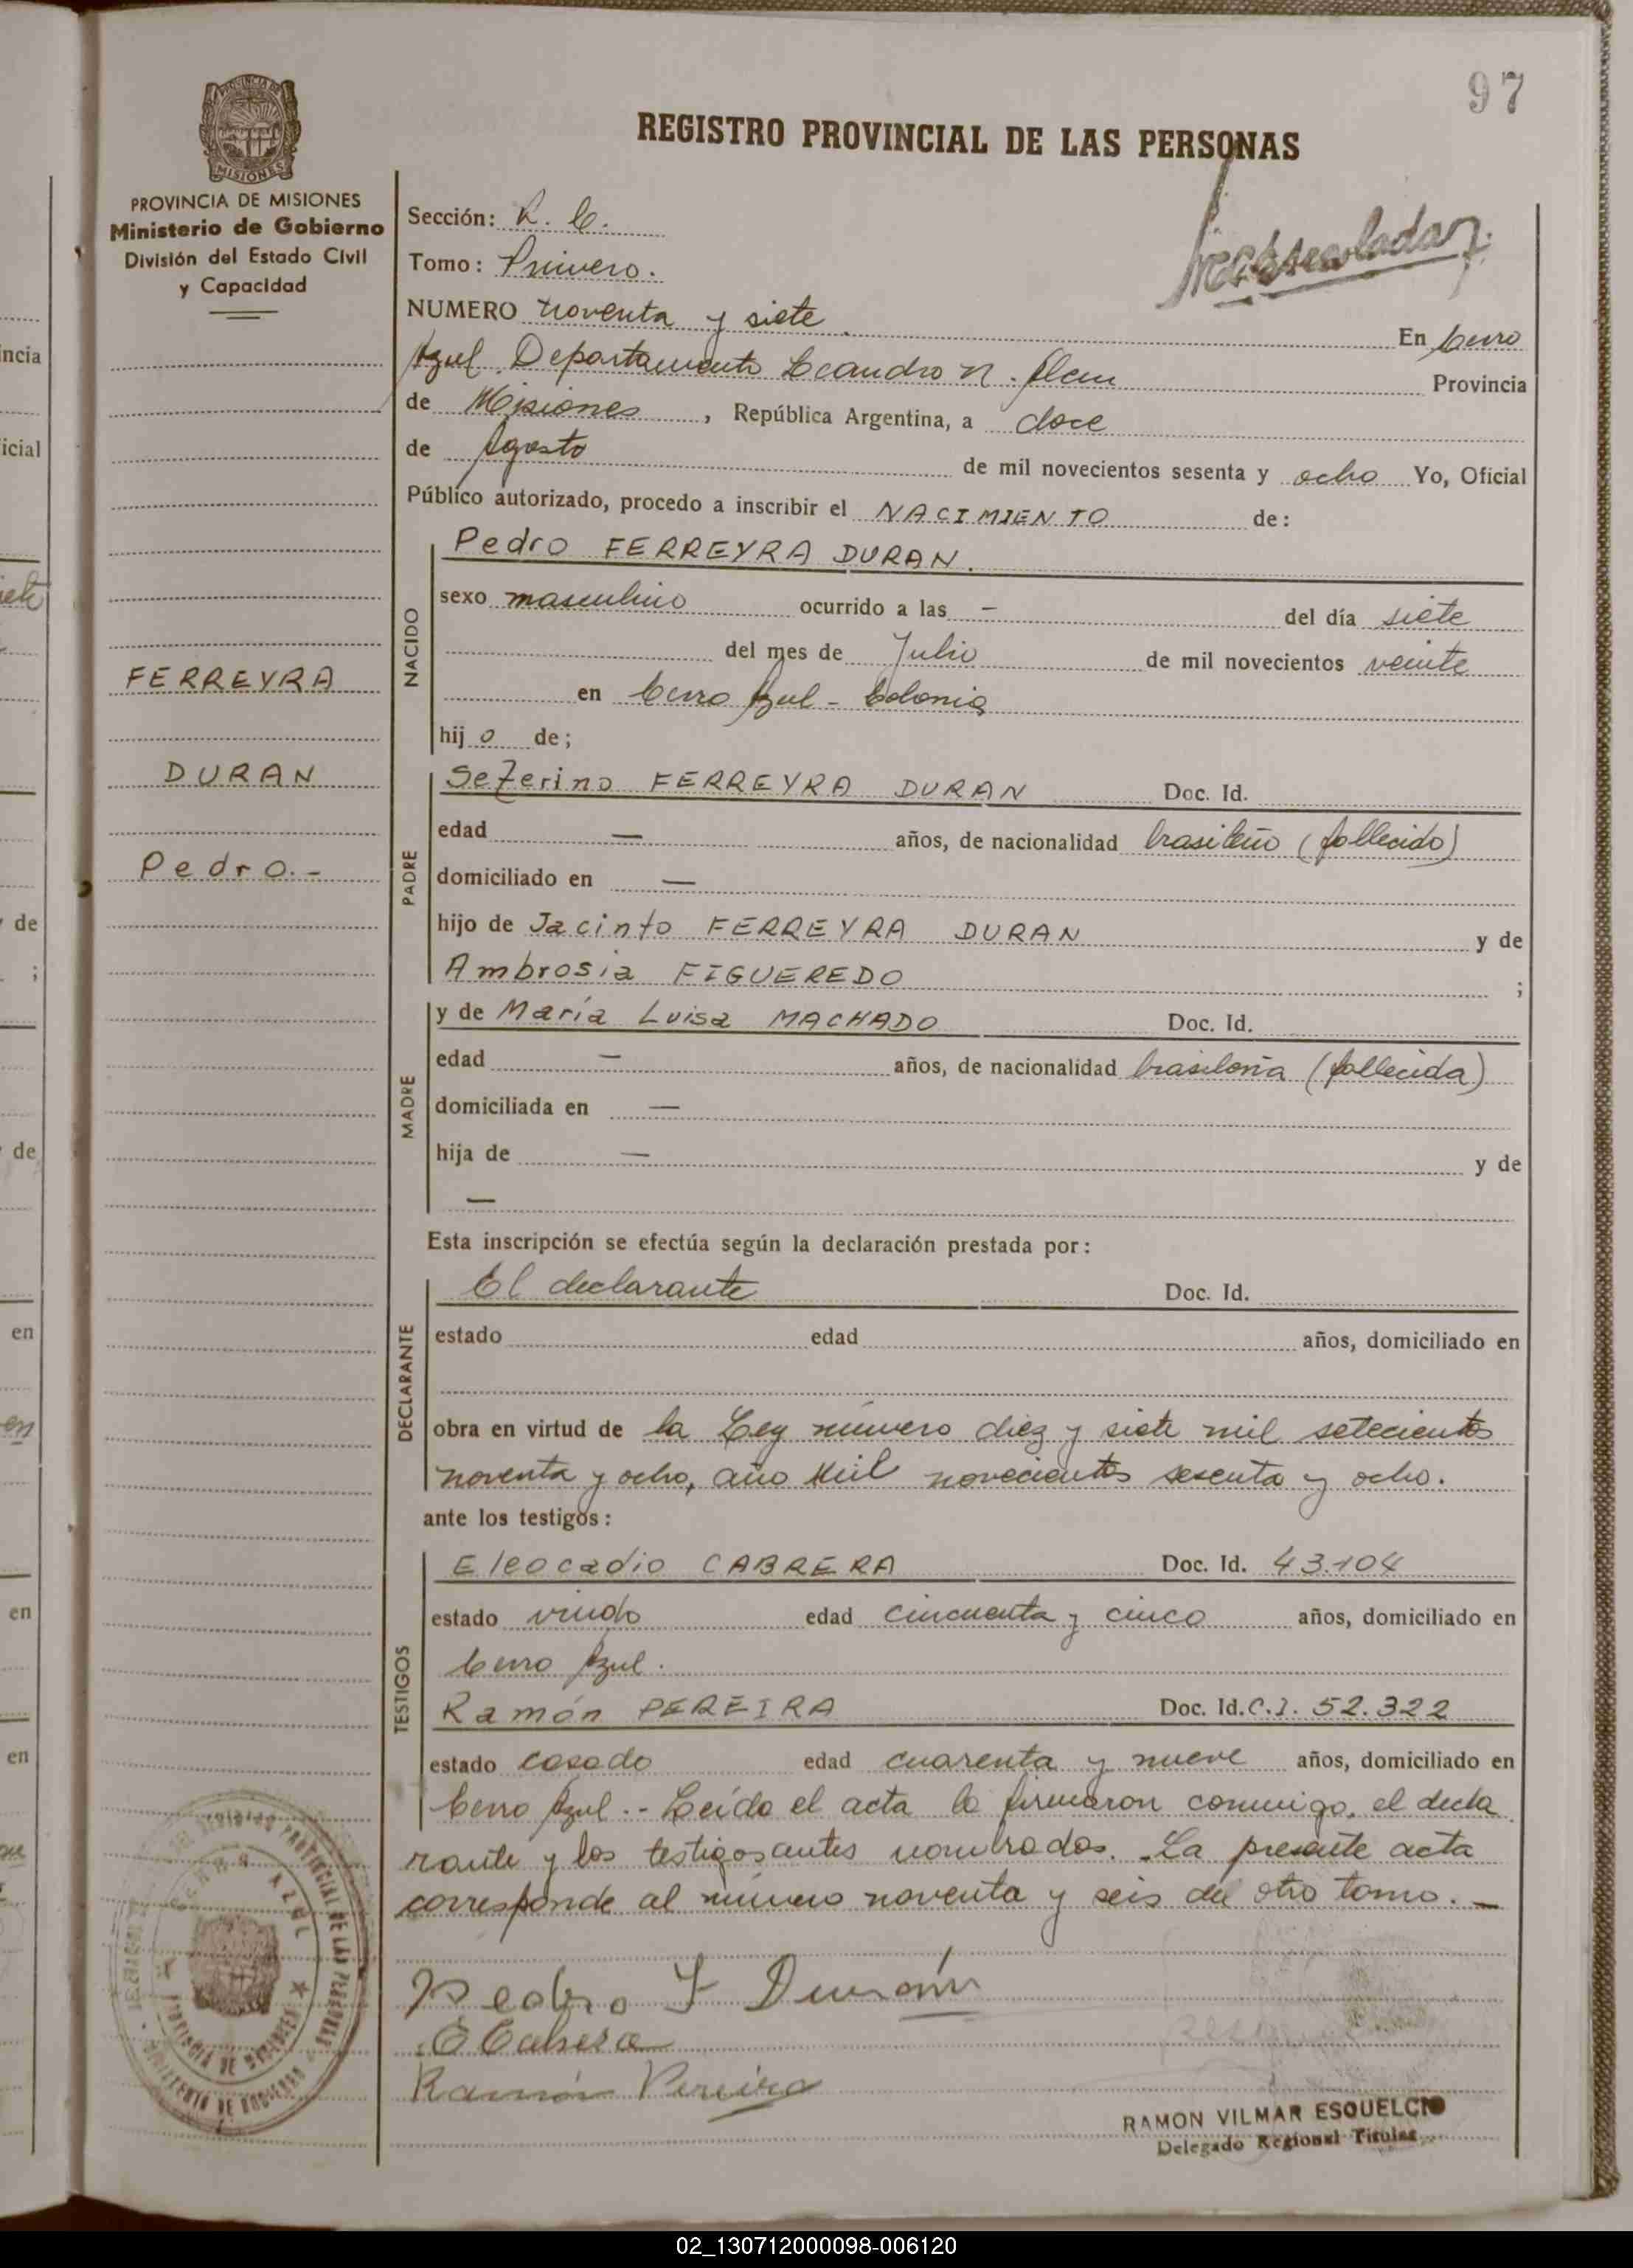 97
REGISTRO PROVINCIAL DE LAS PERSONAS
PROVINCIA DE MISIONES
Ministerio de Gobierno
División del Estado Civil
y Capacidad
Sección: R. C.
Tomo: Primero.
NUMERO noventa y siete. En Cerro
Azul. Departamento Leandro N. Alem Provincia
de Misiones, República Argentina, a doce
de Agosto de mil novecientos sesenta y ocho Yo, Oficial
Público autorizado, procedo a inscribir el NACIMIENTO de:
Pedro FERREYRA DURAN.
NACIDO
sexo masculino ocurrido a las – del día siete
del mes de Julio de mil novecientos veinte
en Cerro Azul - Colonia
hijo de;
FERREYRA
DURAN
Pedro.-
PADRE
Seferino FERREYRA DURAN Doc. Id.
edad — años, de nacionalidad brasileño (fallecido)
domiciliado en —
hijo de Jacinto FERREYRA DURAN y de
Ambrosia FIGUEREDO ;
MADRE
y de María Luisa MACHADO Doc. Id.
edad – años, de nacionalidad brasileña (fallecida)
domiciliada en —
hija de — y de
—
Esta inscripción se efectúa según la declaración prestada por:
DECLARANTE
El declarante Doc. Id.
estado edad años, domiciliado en
obra en virtud de la Ley número diez y siete mil setecientos
noventa y ocho, año Mil novecientos sesenta y ocho.
ante los testigos:
TESTIGOS
Eleocadio CABRERA Doc. Id. 43.104
estado viudo edad cincuenta y cinco años, domiciliado en
Cerro Azul.
Ramón PEREIRA Doc. Id. C.I. 52.322
estado casado edad cuarenta y nueve años, domiciliado en
Cerro Azul.- Leída el acta la firmaron conmigo, el decla
rante y los testigos antes nombrados. La presente acta
corresponde al número noventa y seis del otro tomo. —
Pedro F Durán
E Cabrera
Ramón Pereira
RAMON VILMAR ESQUELCIO
Delegado Regional Titular
02_130712000098-006120